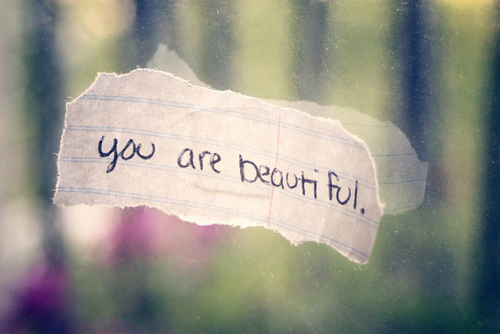 you are beautiful.